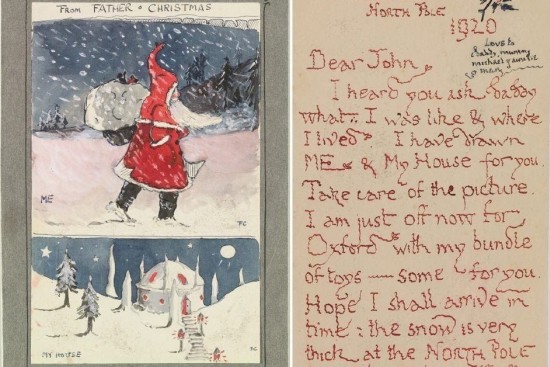 FROM FATHER CHRISTMAS
ME
FC
MY HOUSE
FC
NORTH POLE
1920
Love to
daddy, mummy
michael & auntie
mary
Dear John,
I heard you ask daddy
what I was like & where
I lived. I have drawn
ME & My House for you.
Take care of the picture.
I am just off now for
Oxford with my bundle
of toys — some for you.
Hope I shall arrive in
time : the snow is very
thick at the NORTH POLE